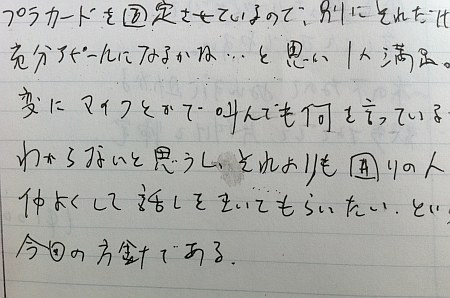 プラカードを固定させているので、別にそれだけ
充分アピールになるかね…と思い1人満足。
変にマイクとかで叫んでも何を言っている
わからないと思うし、それよりも囲りの人
仲よくして話しをきいてもらいたい.とい
今回の方針である.